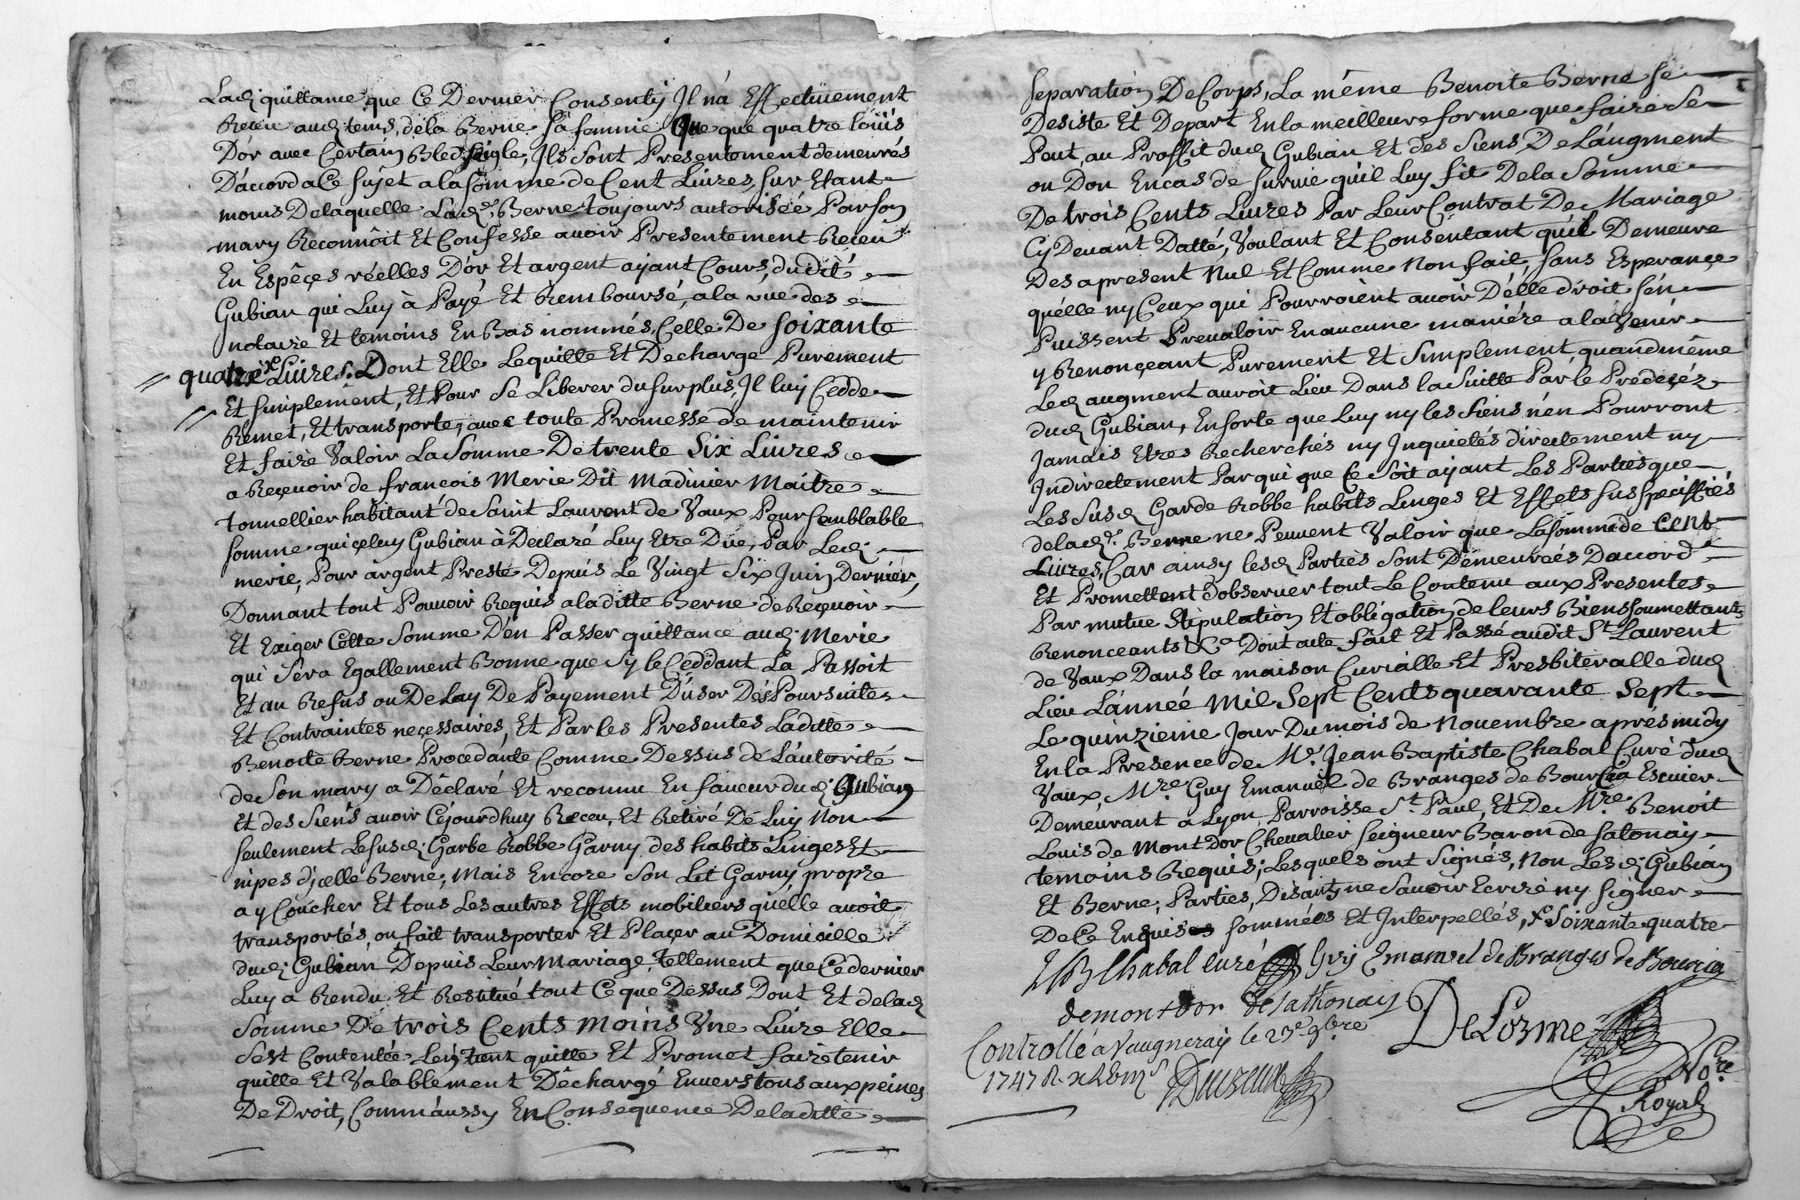 Lad: quittance que Ce Dernier Consentij Il n'a Effectivement
Receu aud: tems, de la Berne sa femme Que que quatre louïs
D'or avec Certain Bled seigle, Ils sont Presentement demeurés
D'accord a Ce sujet a la somme de Cent Livres, sur Etant
moins De laquelle Lad:e Berne toujours autorisée Par son
mary Reconnoit Et Confesse avoir Presentement Receu
En Espêces réelles D'or Et argent ayant Cours, dudit
Gubian qui Luy à Payé Et Remboursé, a la vüe des
notaire Et temoins En Bas nommés, Celle De soixante
quatre Livres. Dont Elle Le quitte Et Decharge Purement
Et simplement, Et Pour se Liberer du surplus, Il luy Cedde
Remet, Et transporte, avec toute Promesse de maintenir
Et faire Valoir La Somme De trente Six Livres
a Reçevoir de françois Merie Dit Madinier Maitre
tonnellier habitant de Saint Laurent de Vaux Pour semblable
somme qu'içeluy Gubian à Declaré Luy Etre Düe, Par Led:
merie, Pour argent Presté Depuis Le Vingt Six Juin Dernier,
Donnant tout Pouvoir Requis a laditte Berne de Reçevoir
Et Exiger Cette Somme D'en Passer quittance aud: Merie
qui Sera Egallement Bonne que Sy le Ceddant La Passoit
Et au Refus ou De Lay De Payement D'user Des Poursuites
Et Contraintes neçessaires, Et Par les Presentes Laditte
Benoite Berne Procedante Comme Dessus de L'autorité
de Son mary a Déclaré Et reconnu En faveur dud: Gubian
Et des Siens avoir Cejourd'huy Receu, Et Retiré De Luy Non
seulement Le susd: Garde Robbe Garny des habits Linges Et
nipes d'içelle Berne, Mais Encore Son Lit Garny propre
a y Coucher Et tous Les autres Effets mobiliers qu'elle avoit
transportés, ou fait transporter Et Plaçer au Domicille
dud: Gubian Depuis Leur Mariage, tellement que Ce dernier
Luy a Rendu Et Restitué tout Ce que Dessus Dont Et de lad:
Somme De trois Cents moins Vne Livre Elle
S'est Contentée, L'en tient quitte Et Promet faire tenir
quitte Et Valablement Déchargé Envers tous aux peines
De Droit, Comm'aussy En Consequence De laditte
separation De Corps, La même Benoite Berne se
Desiste Et Depart En la meilleure forme que faire se
Peut, au Proffit dud: Gubian Et des Siens De L'augment
ou Don En cas de survie qu'il Luy fit De la Somme
De trois Cents Livres Par Leur Contrat De Mariage
Cy Devant Datté, Voulant Et Consentant qu'il Demeure
Des a present Nul Et Comme Non fait, sans Esperançe
qu'elle ny Ceux qui Pourroient avoir D'elle droit s'en
Puissent Prevaloir En aucune maniére a l'avenir
y Renonçeant Purement Et Simplement, quand même
Led: augment auroit Lieu Dans la Suitte Par le Predeçéz
dud: Gubian, En sorte que Luy ny les Siens n'en Pourront
Jamais Etres Recherchés ny Inquietés directement ny
Indirectement Par qui que Ce Soit ayant Les Parties que
Les Susd: Garde Robbe habits Linges Et Effets sus specifiiés
de lad:e Berne ne Peuvent Valoir que La Somme de Cent
Livres, Car ainsy lesd: Parties Sont Demeurées D'accord
Et Promettent d'observer tout Le Contenu aux Presentes
Par mutue stipulation Et obligation de leurs Biens soumettants
Renonceants &ca Dont acte fait Et Passé audit St Laurent
de Vaux Dans la maison Curialle Et Presbiteralle dud:
Lieu L'année Mil Sept Cents quarante Sept
Le quinzieme Jour Du mois de Novembre aprés midy
En la Présence de Mre Jean Baptiste Chabal Curé dud:
Vaux, Mre Guy Emanuel de Branges de Bourcia Escuier
Demeurant a Lyon Parroisse St Paul, Et De Mre Benoit
Louis de Mont d'or Chevalier Seigneur Baron de Satonaÿ
temoins Requis; Lesquels ont Signés, Non Lesd: Gubian
Et Berne, Parties, Disants ne Savoir Ecrire ny signer
De Ce Enquis sommées Et Interpellés, x Soixante quatre
JB Chabal curé Guÿ Emanuel de Branges de Bourcia
demontdor de Sathonaÿ
De Lorme
Controllé a Vaugneraÿ le 27e 9bre
1747 R.
Nore
Royal